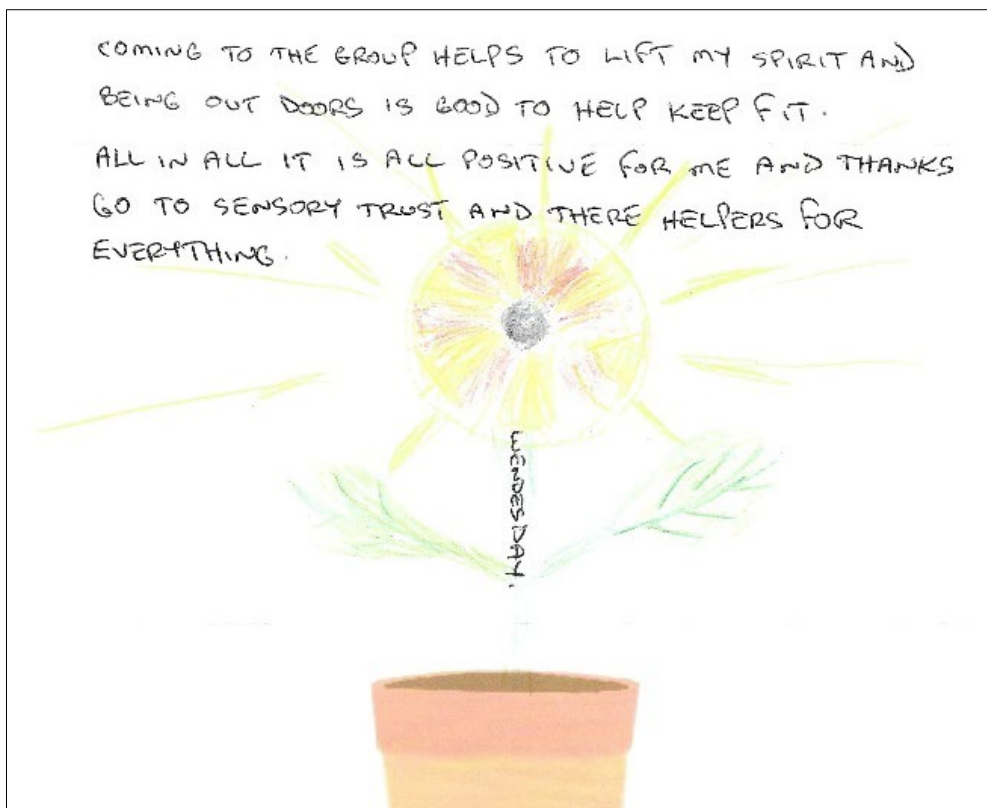 COMING TO THE GROUP HELPS TO LIFT MY SPIRIT AND
BEING OUT DOORS IS GOOD TO HELP KEEP FIT.
ALL IN ALL IT IS ALL POSITIVE FOR ME AND THANKS
GO TO SENSORY TRUST AND THERE HELPERS FOR
EVERYTHING.
WENDESDAY.